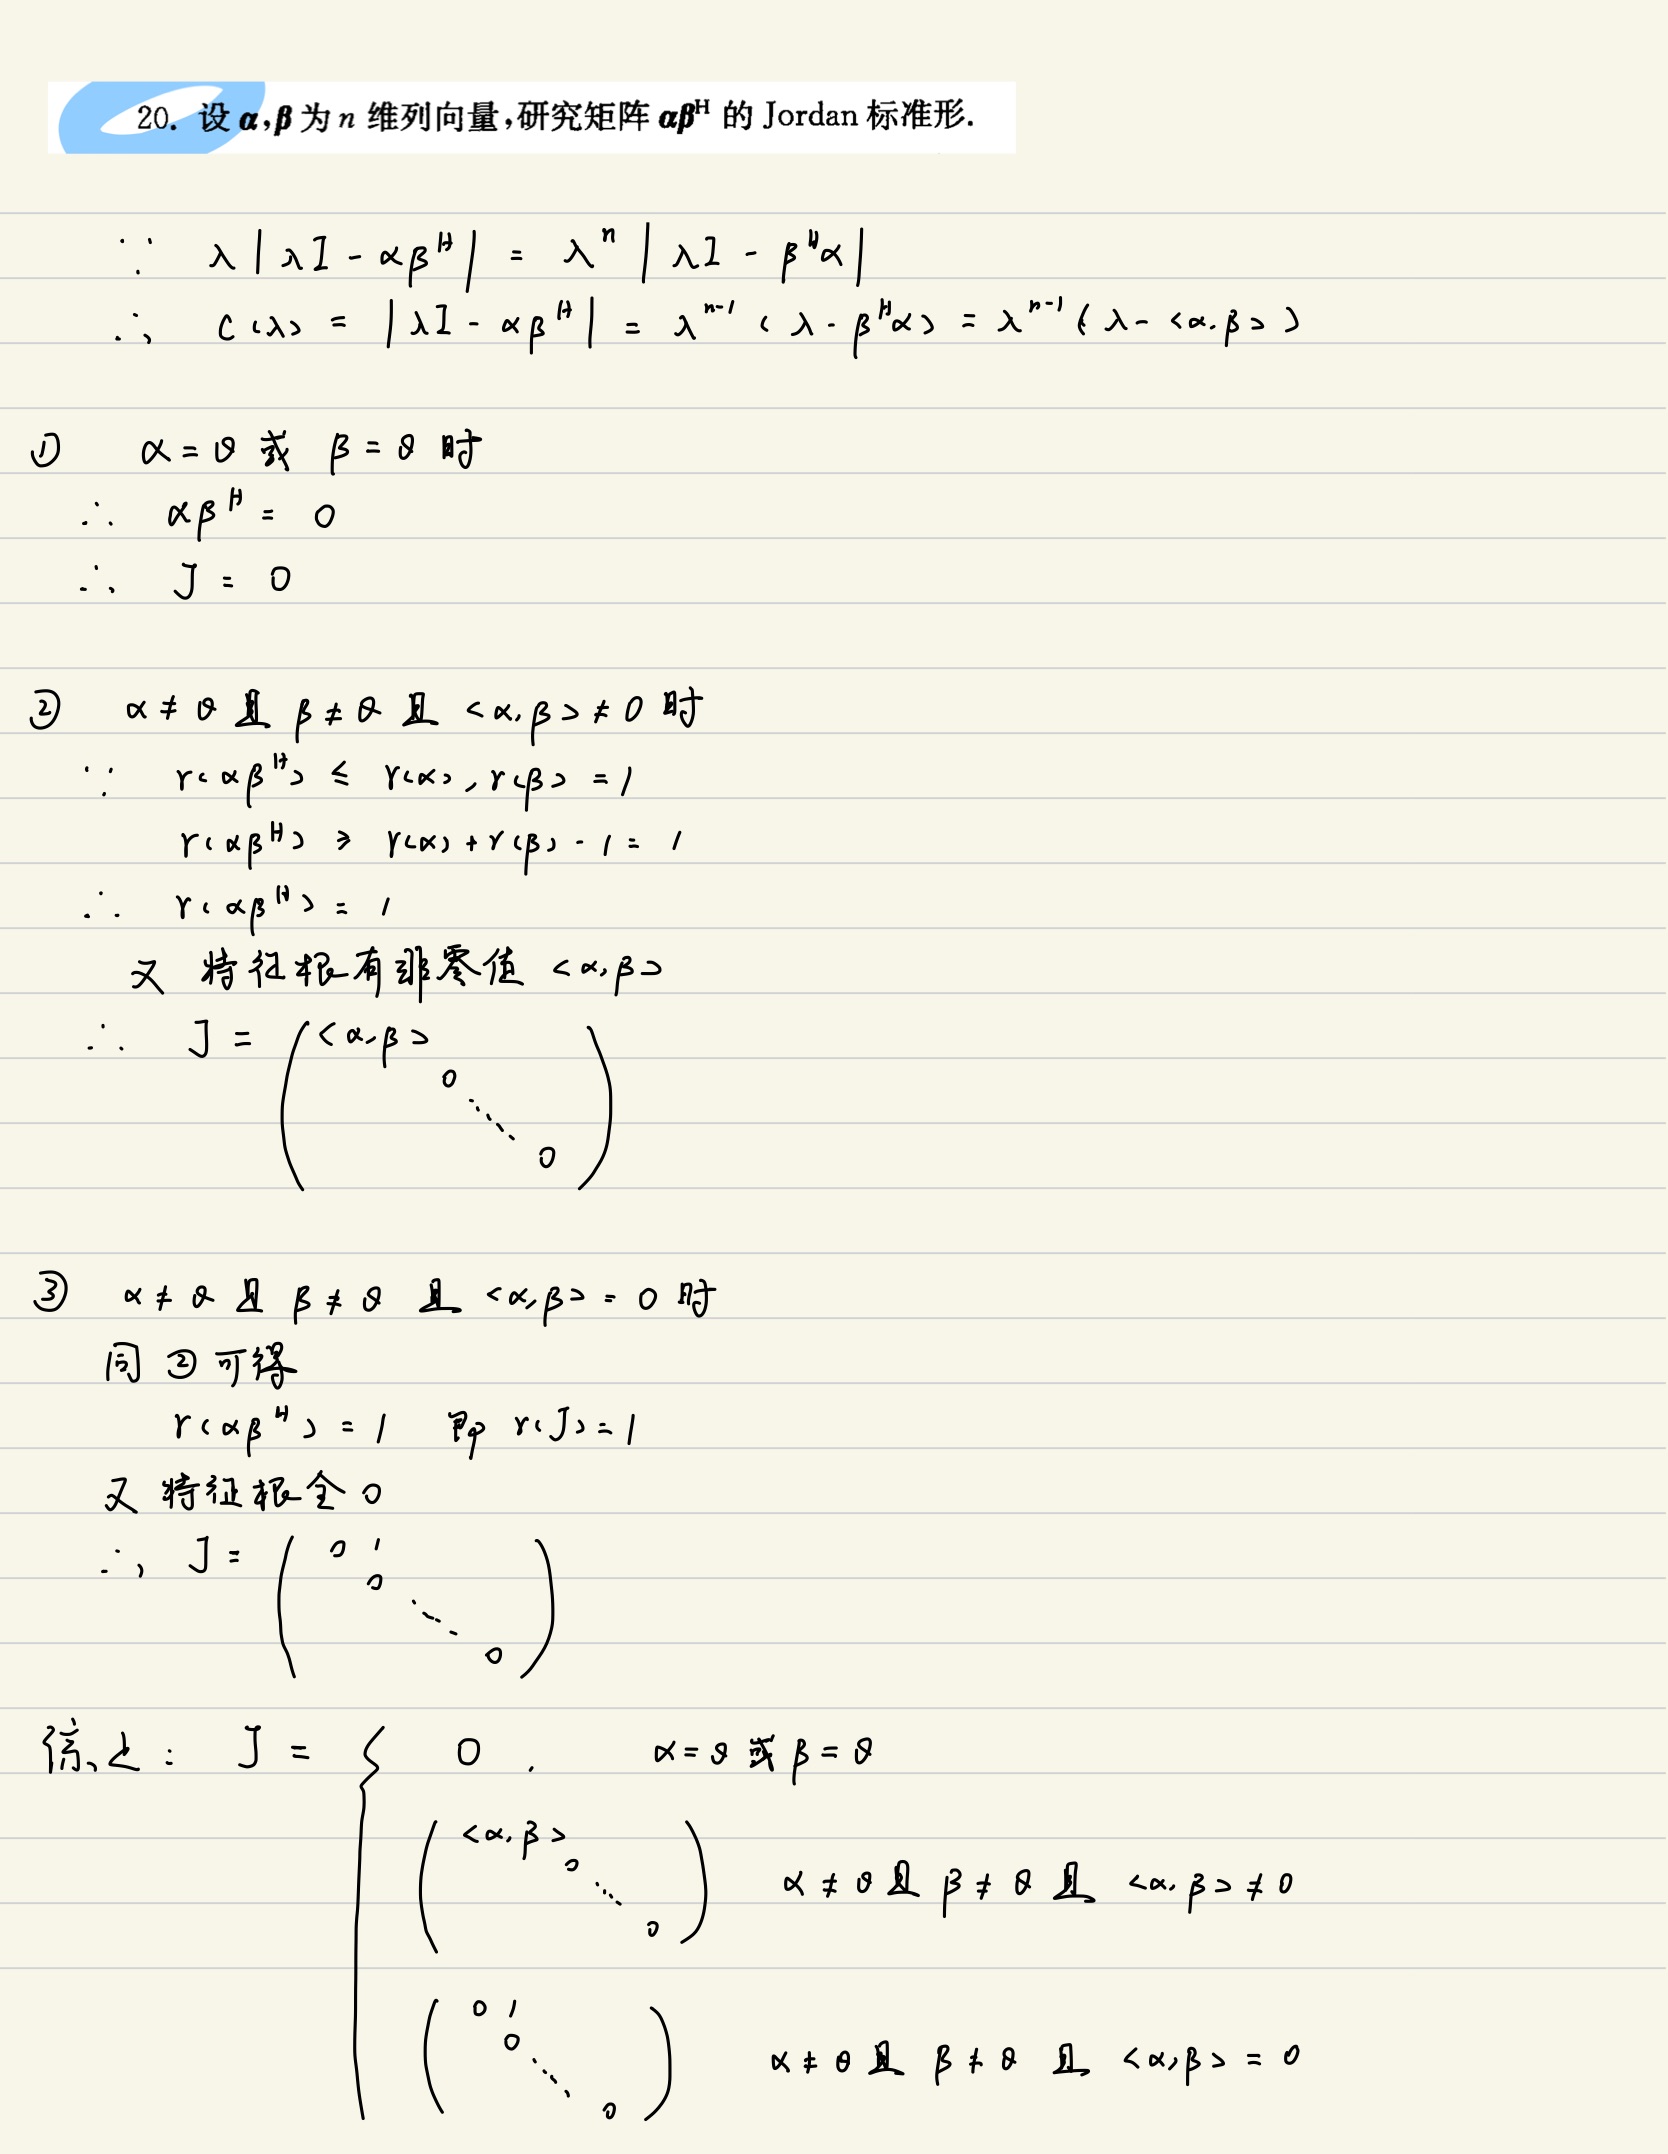 20. 设 α,β 为 n 维列向量,研究矩阵 αβᴴ 的 Jordan 标准形.
∵ λ|λI - αβᴴ| = λⁿ|λI - βᴴα|
∴ C(λ) = |λI - αβᴴ| = λⁿ⁻¹(λ - βᴴα) = λⁿ⁻¹(λ - <α,β>)
① α = θ 或 β = θ 时
∴ αβᴴ = 0
∴ J = 0
② α ≠ θ 且 β ≠ θ 且 <α,β> ≠ 0 时
∵ r(αβᴴ) ≤ r(α), r(β) = 1
r(αβᴴ) ≥ r(α) + r(β) - 1 = 1
∴ r(αβᴴ) = 1
又 特征根有非零值 <α,β>
∴ J = ( <α,β>
0
⋱
0 )
③ α ≠ θ 且 β ≠ θ 且 <α,β> = 0 时
同 ② 可得
r(αβᴴ) = 1 即 r(J) = 1
又 特征根全 0
∴ J = ( 0 1
0
⋱
0 )
综上: J = { 0 , α = θ 或 β = θ
( <α,β>
0
⋱
0 ) α ≠ θ 且 β ≠ θ 且 <α,β> ≠ 0
( 0 1
0
⋱
0 ) α ≠ θ 且 β ≠ θ 且 <α,β> = 0